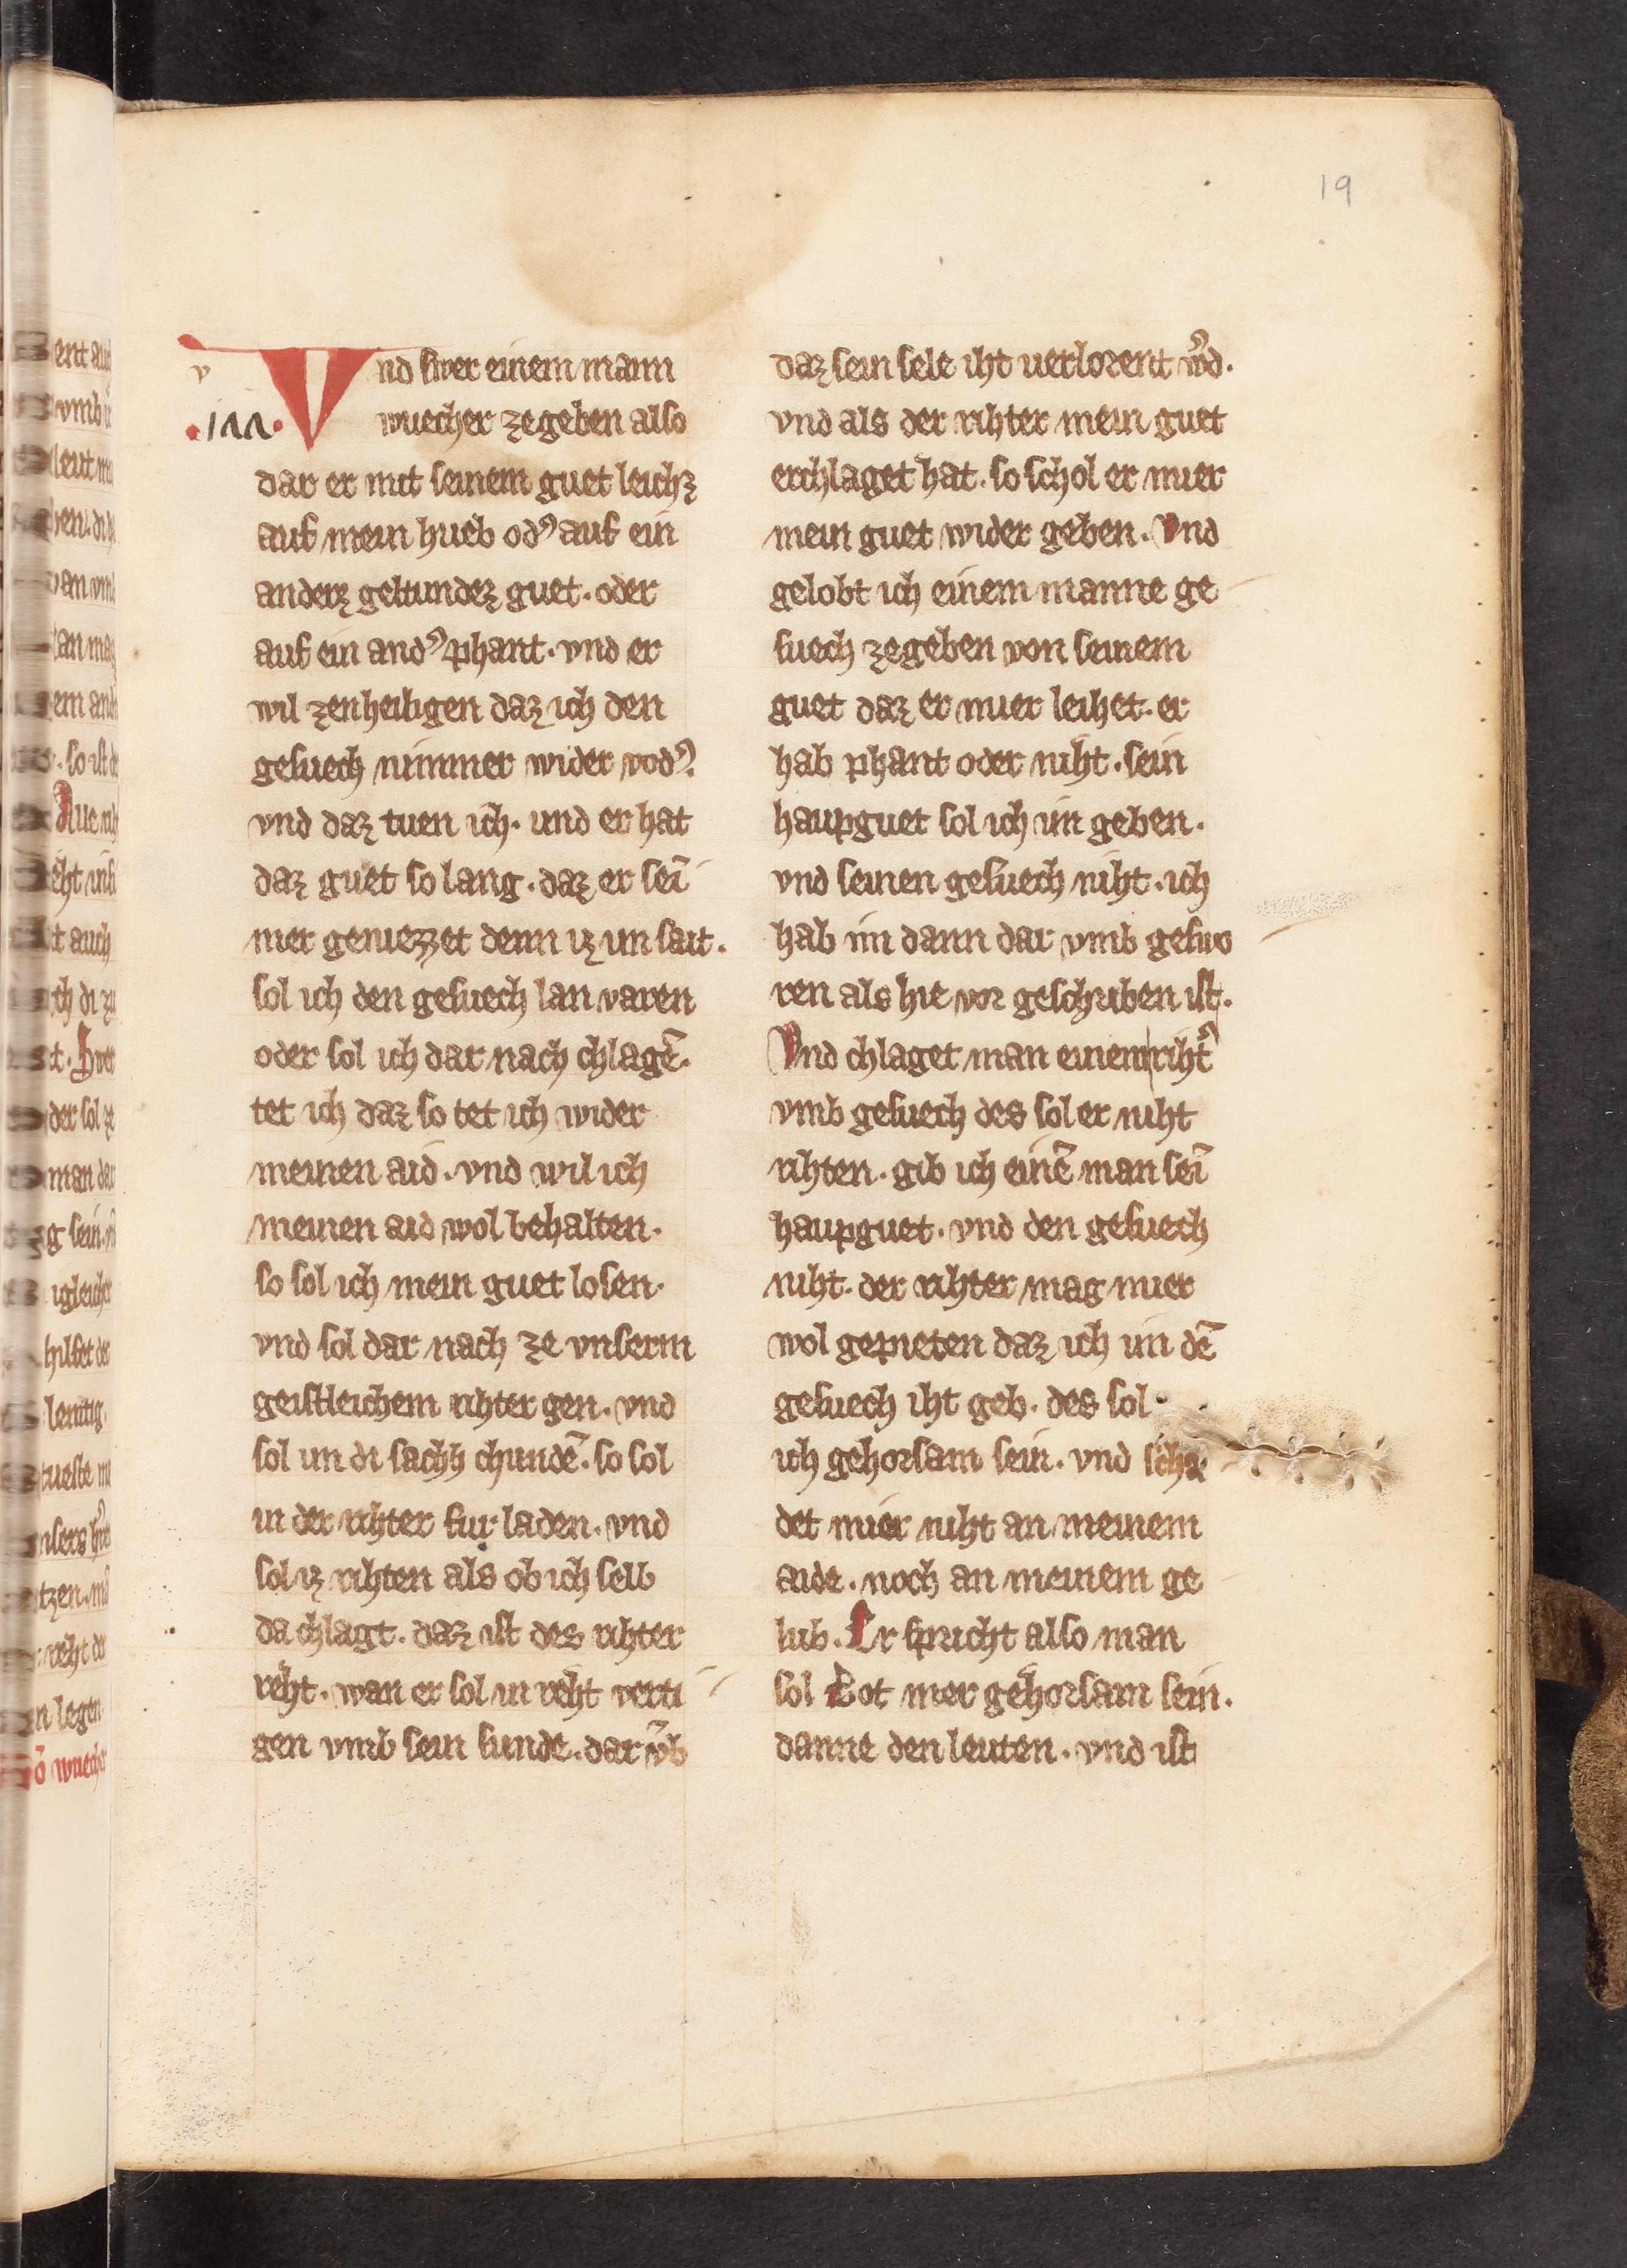 19
v
Vnd swer einem mann
.1ΛΛ. wuecher ze geben also
dar er mit seinem guet leichz
auf mein hueb od᾽ auf ein
anderz gefundez guet. oder
auf ein and᾽ phant. vnd er
wil zenheiligen daz ich den
gesuech nimmer wider vod᾽.
vnd daz tuen ich. und er hat
daz guet so lang. daz er sei᷑
mer geniezzet denn iz im sait.
sol ich den gesuech lan varen
oder sol ich dar nach chlagē.
tet ich daz so tet ich wider
meinen aid. vnd wil ich
meinen aid wol behalten.
so sol ich mein guet losen.
vnd sol dar nach ze vnserm
geistleichem rihter gen. vnd
sol im di sachh chundē. so sol
in der rihter fur laden. vnd
sol iz rihten als ob ich selb
da chlagt. daz ist des rihter
reht. wan er sol in reht verti
gen vmb sein sunde. dar v̄b
daz sein sele iht verlorent w᾽d.
vnd als der rihter mein guet
erchlaget hat. so schol er mier
mein guet wider geben. Vnd
gelobt ich einem manne ge
suech ze geben von seinem
guet daz er mier leihet. er
hab phant oder niht. sein
haupguet sol ich im geben.
vnd seinen gesuech niht. ich
hab im dann dar vmb geswo
ren als hie vor geschriben ist.
Vnd chlaget man einem riht᾽
vmb gesuech des sol er niht
rihten. gib ich einē man sei᷑
haupguet. vnd den gesuech
niht. der rihter mag mier
wol gepieten daz ich im dē
gesuech iht geb. des sol
ich gehorsam sein. vnd scha
det mier niht an meinem
aide. noch an meinem ge
lub. Er spricht also man
sol Got mer gehorsam sein.
danne den leuten. vnd ist